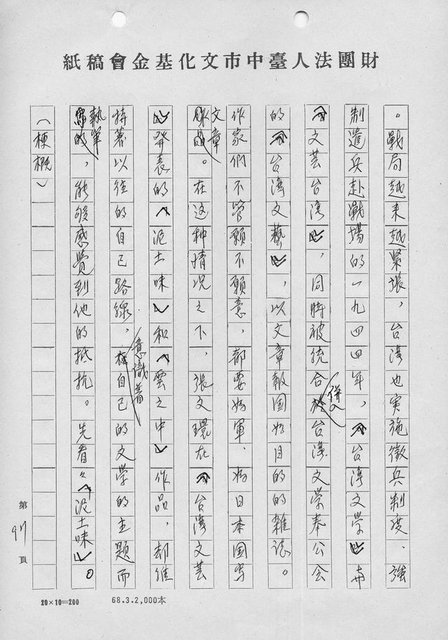 財團法人臺中市文化基金會稿紙
。戰局越來越緊張，台湾也实施徵兵制度、強
制遣兵赴戰場的一九四四年，《台湾文學》与
《文芸台湾》，同時被統合於台湾文学奉公会
的《台湾文藝》，以文章報国为目的的雜誌。
作家們不管願不願意，都要为軍、为日本国写
文章。在这种情况之下，張文環在《台湾文芸
》發表的《泥土味》和《雲之中》作品，却維
持著以後的自己路線，意識著自己的文学的主題而
執筆，能够感覺到他的抵抗。先看《泥土味》。
（梗概）
第
91
頁
20×10=200
68.3.2,000本